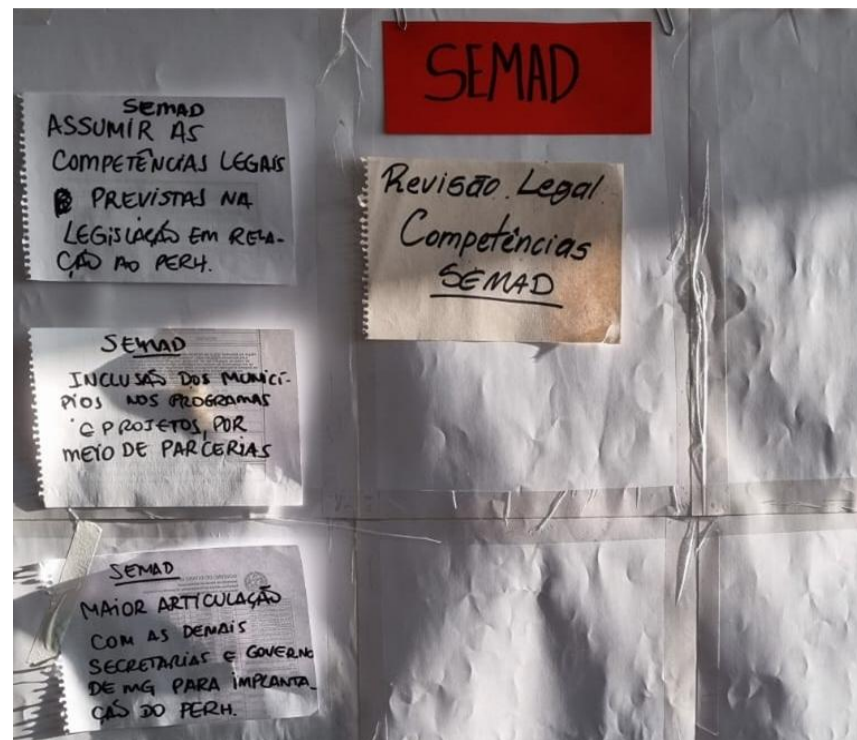 SEMAD
SEMAD
ASSUMIR AS
COMPETÊNCIAS LEGAIS
PREVISTAS NA
LEGISLAÇÃO EM RELA-
ÇÃO AO PERH.
Revisão Legal
Competências
SEMAD
SEMAD
INCLUSÃO DOS MUNICÍ-
PIOS NOS PROGRAMAS
E PROJETOS, POR
MEIO DE PARCERIAS
SEMAD
MAIOR ARTICULAÇÃO
COM AS DEMAIS
SECRETARIAS E GOVERNO
DE MG PARA IMPLANTA-
ÇÃO DO PERH.